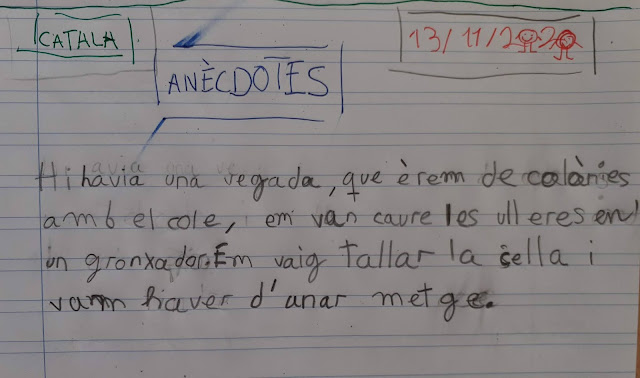 CATALA
13/11/2020
ANÈCDOTES
Hi havia una vegada, que èrem de colònies
amb el cole, em van caure les ulleres en
un gronxador. Em vaig tallar la cella i
vam haver d'anar metge.